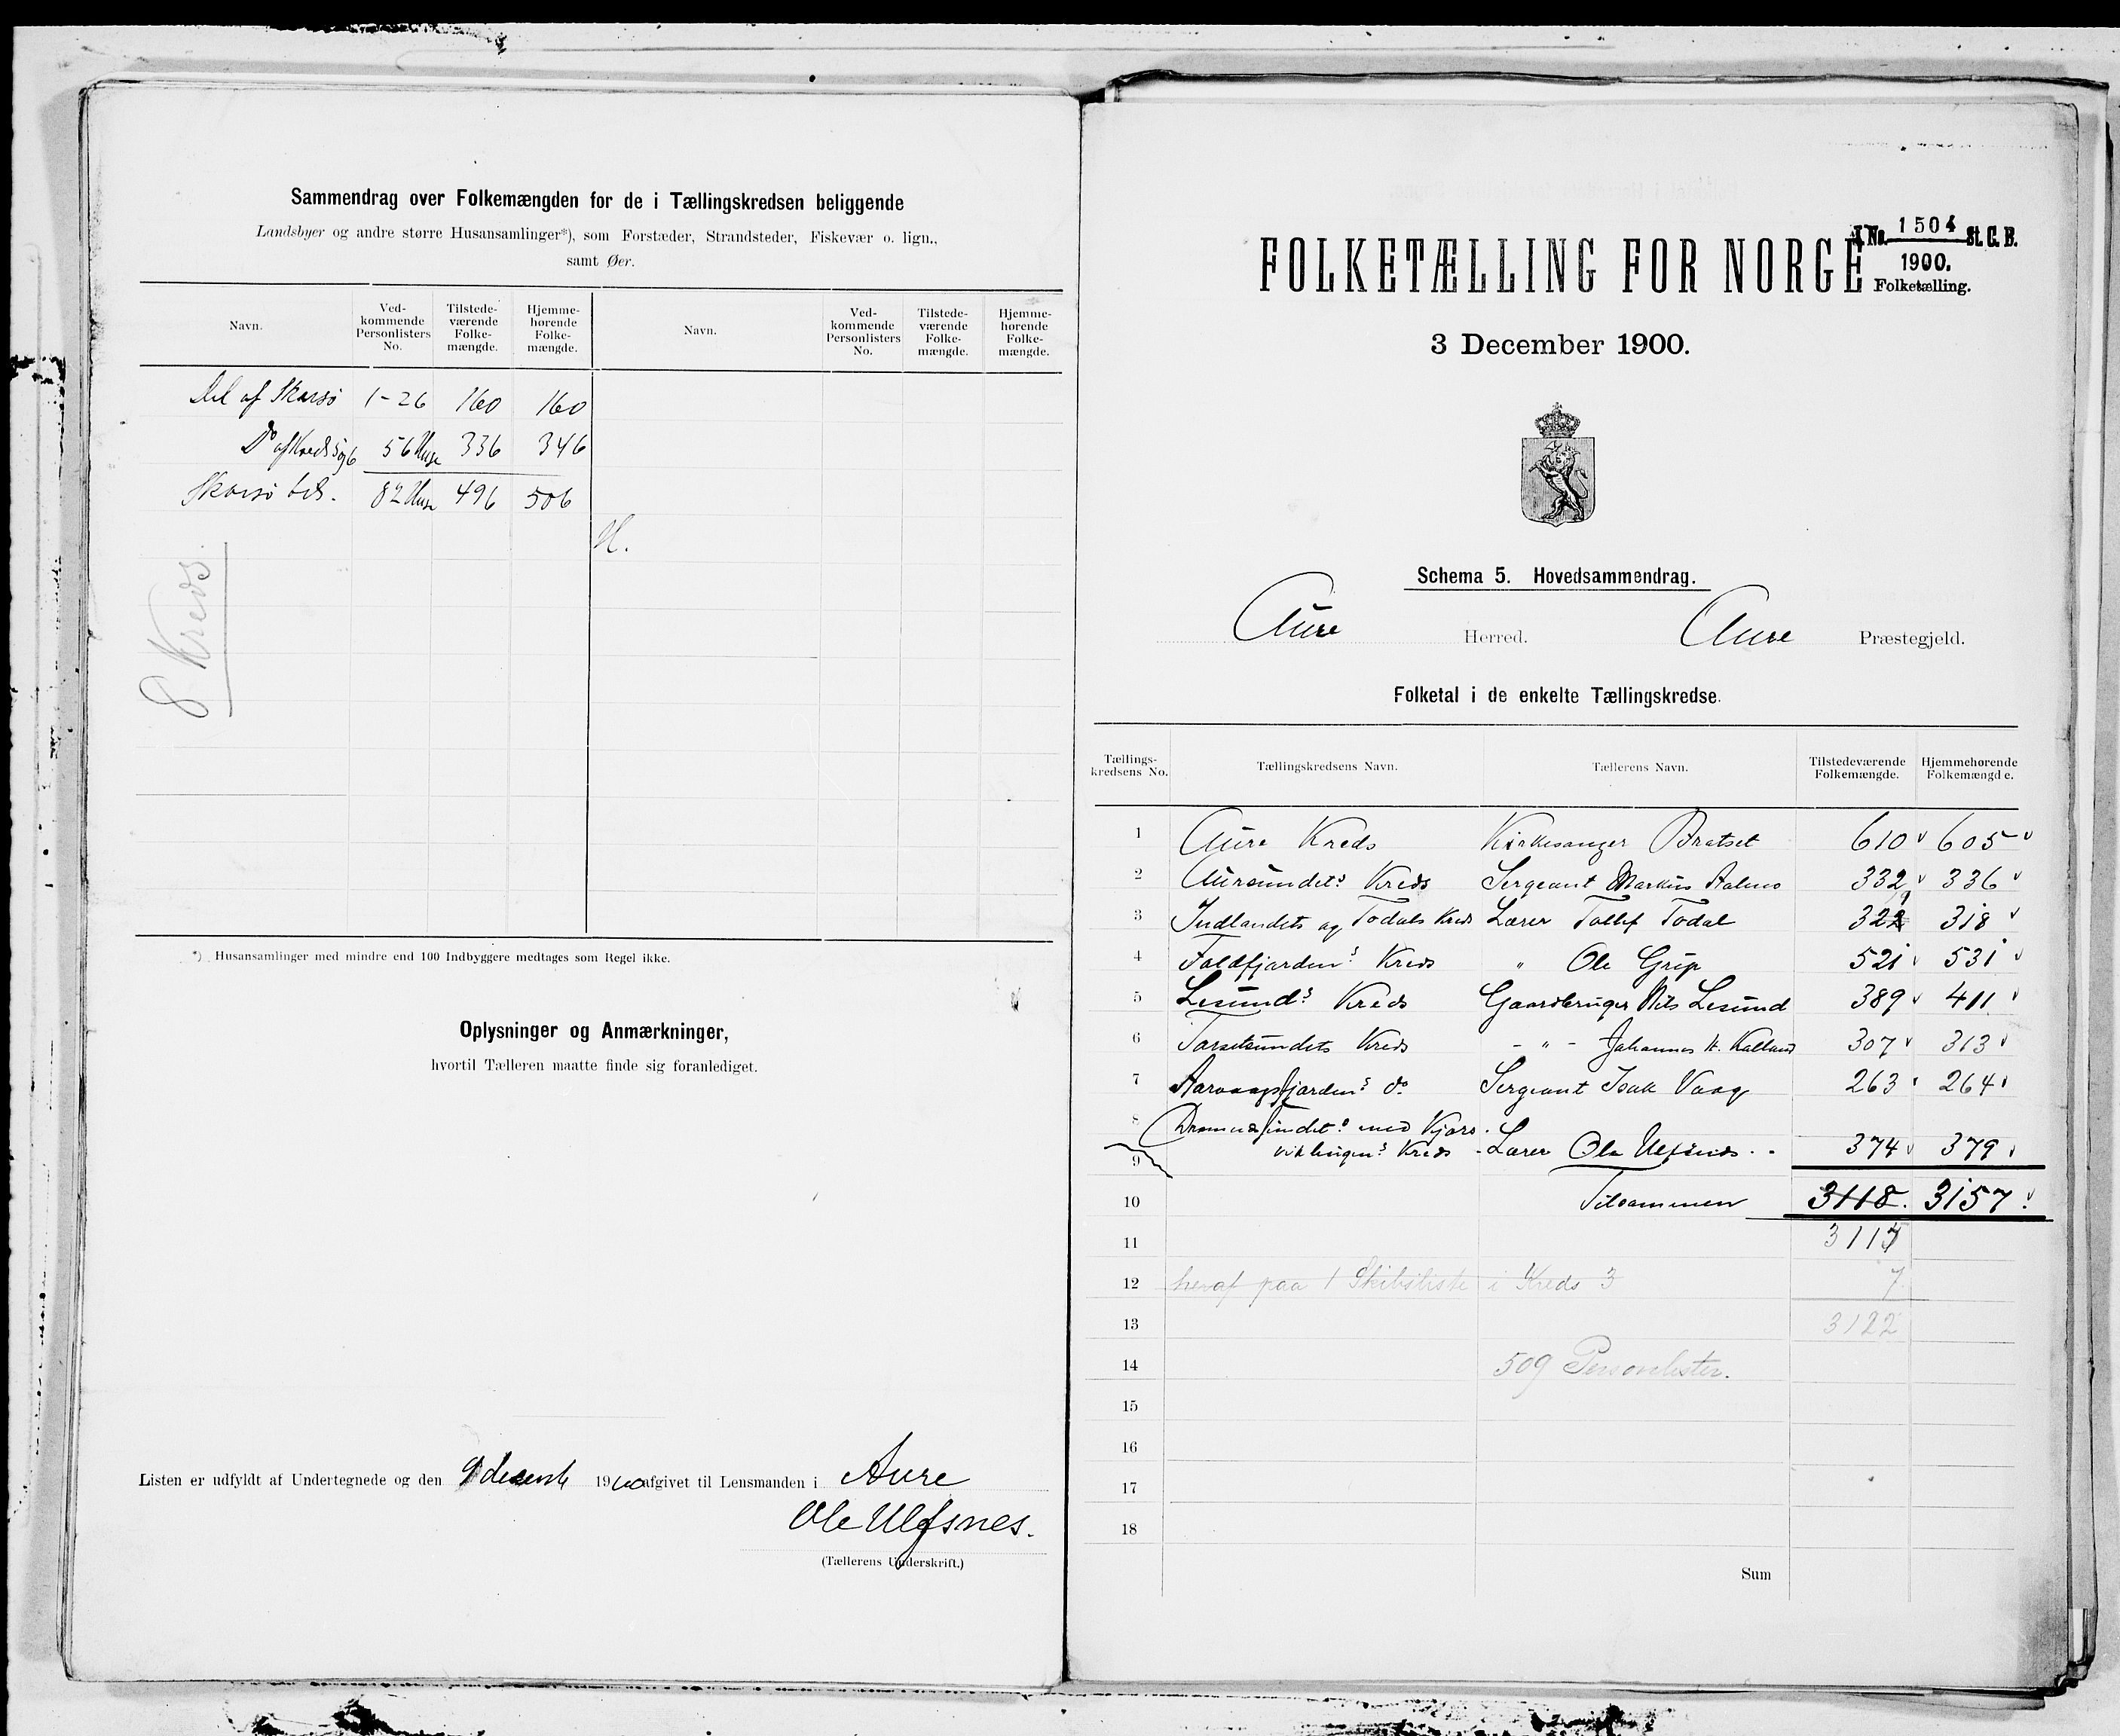 Sammendrag over Folkemængden for de i Tællingskredsen beliggende
Landsbyer og andre større Husansamlinger*), som Forstæder, Strandsteder, Fiskevær o. lign.,
samt Øer.
Navn. Ved-kommende Personlisters No. Tilstede-værende Folke-mængde. Hjemme-hørende Folke-mængde. Navn. Ved-kommende Personlisters No. Tilstede-værende Folke-mængde. Hjemme-hørende Folke-mængde.
Del af Skarsö 1-26 160 160
Do af Kreds 5 og 6 56 Huse 336 346
Skarsö tils. 82 Huse 496 506
H.
8 Kreds.
*) Husansamlinger med mindre end 100 Indbyggere medtages som Regel ikke.
Oplysninger og Anmærkninger,
hvortil Tælleren maatte finde sig foranlediget.
Listen er udfyldt af Undertegnede og den 9 decemb 1900 afgivet til Lensmanden i Aure
Ole Ulfsnes.
(Tællerens Underskrift.)
J No. 1504 St. C. B.
1900.
Folketælling.
FOLKETÆLLING FOR NORGE
3 December 1900.
Schema 5. Hovedsammendrag.
Aure Herred. Aure Præstegjeld.
Folketal i de enkelte Tællingskredse.
Tællings-kredsens No. Tællingskredsens Navn. Tællerens Navn. Tilstedeværende Folkemængde. Hjemmehørende Folkemængde.
1 Aure Kreds Kirkesanger Bratset 610 605
2 Aursundets Kreds Sergeant Markus Aalmo 332 336
3 Indlandets og Todals Kreds Lærer Tollef Todal 329 318
4 Foldfjordens Kreds " Ole Grip 521 531
5 Lesunds Kreds Gaardbruger Nils Lesund 389 411
6 Torsetsundets Kreds - " - Johannes H. Kalland 307 313
7 Aarvaagsfjordens do Sergeant Isak Vaag 263 264
8 Dromnessundets med Kjørs-
9 viklingens Kreds - Lærer Ole Ulfsnes 374 379
10 Tilsammen 3118. 3157
11 3115
12 heraf paa 1 Skibsliste i Kreds 3 7
13 3122
14 509 Personlister.
15
16
17
18
Sum